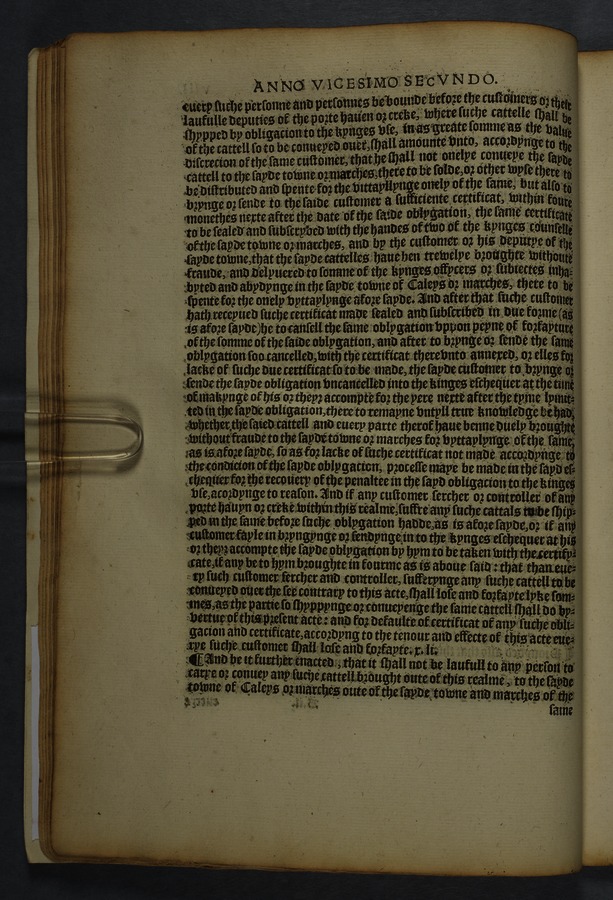 ANNO VICESIMO SECVNDO.
euery suche personne and personnes be bounde before the custoiners or their
laufulle deputies of the porte hauen or creke, where suche cattelle shall be
shypped by obligacion to the kynges vse, in as greate somme as the value
of the cattell so to be conueyed ouer, shall amounte vnto, accordynge to the
discrecion of the same customer, that he shall not onelye conueye the sayde
cattell to the sayde towne or marches, there to be solde, or other wyse there to
be distributed and spente for the vittayllynge onely of the same, but also to
brynge or sende to the saide customer a sufficiente certificat, within foure
monethes nexte after the date of the saide oblygation, the same certificate
to be sealed and subscrybed with the handes of two of the kynges counselle
of the sayde towne or marches, and by the customer or his deputye of the
sayde towne, that the sayde cattelles haue ben trewelye broughte withoute
fraude, and delyuered to somme of the kynges offycers or subiectes inha-
byted and abydynge in the sayde towne of Caleys or marches, there to be
spente for the onely vyttaylynge afore sayde. And after that suche customer
hath receyued suche certificat made sealed and subscribed in due forme (as
is afore sayde) he to cansell the same oblygation vppon peyne of forfayture
of the somme of the saide oblygation, and after to brynge or sende the same
oblygation soo cancelled, with the certificat therevnto annexed, or elles for
lacke of suche due certificat so to be made, the sayde customer to brynge or
sende the sayde obligation vncancelled into the kinges eschequer at the time
of makynge of his or theyr accompte for the yere nexte after the tyme lymit-
ted in the sayde obligation, there to remayne vntyll true knowledge be had,
whether the saied cattell and euery parte therof haue benne duely broughte
without fraude to the sayde towne or marches for vyttaylynge of the same,
as is afore sayde, so as for lacke of suche certificat not made accordynge to
the condicion of the sayde oblygation, processe maye be made in the sayd es-
chequer for the recouery of the penaltee in the sayd obligation to the kinges
vse, acordynge to reason. And if any customer sercher or controller of any
porte hauyn or creke within this realme, suffre any suche cattals to be ship-
ped in the same before suche oblygation hadde, as is afore sayde, or if any
customer fayle in bryngynge or sendynge in to the kynges eschequer at his
or theyr accompte the sayde oblygation by hym to be taken with the certify-
cate, if any be to hym broughte in fourme as is aboue said : that than eue-
ry such customer sercher and controller, sufferynge any suche cattell to be
conueyed ouer the see contrary to this acte, shall lose and forfayte lyke som-
mes, as the partie so shyppynge or conueyenge the same cattell shall do by-
vertue of this present acte : and for defaulte of certificat of any suche obli-
gacion and certificate, accordyng to the tenour and effecte of this acte eue-
rye suche customer shall lose and forfayte. x. li.
¶ And be it further enacted, that it shall not be laufull to any person to
carye or conuey any suche cattell brought oute of this realme, to the sayde
towne of Caleys or marches oute of the sayde towne and marches of the
same